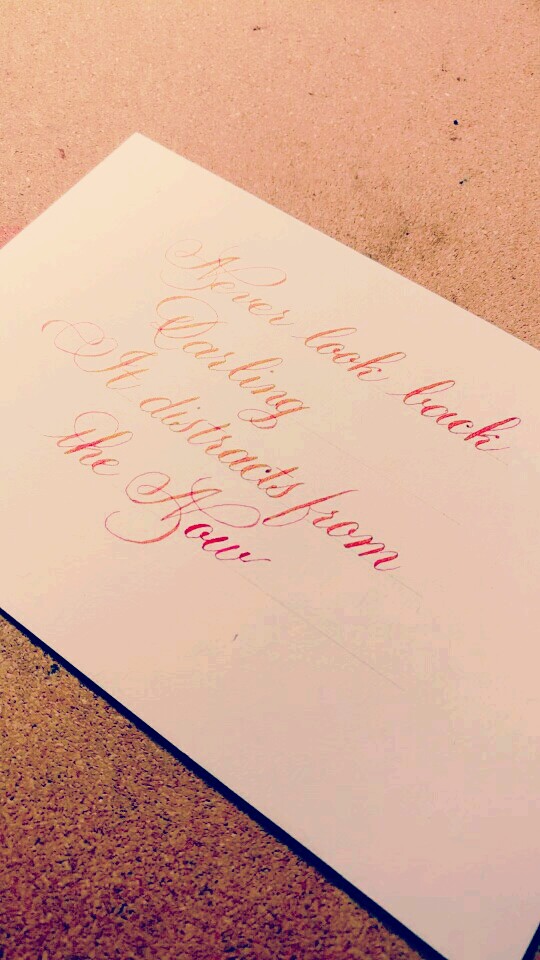 Never look back
Darling
It distracts from
the Now